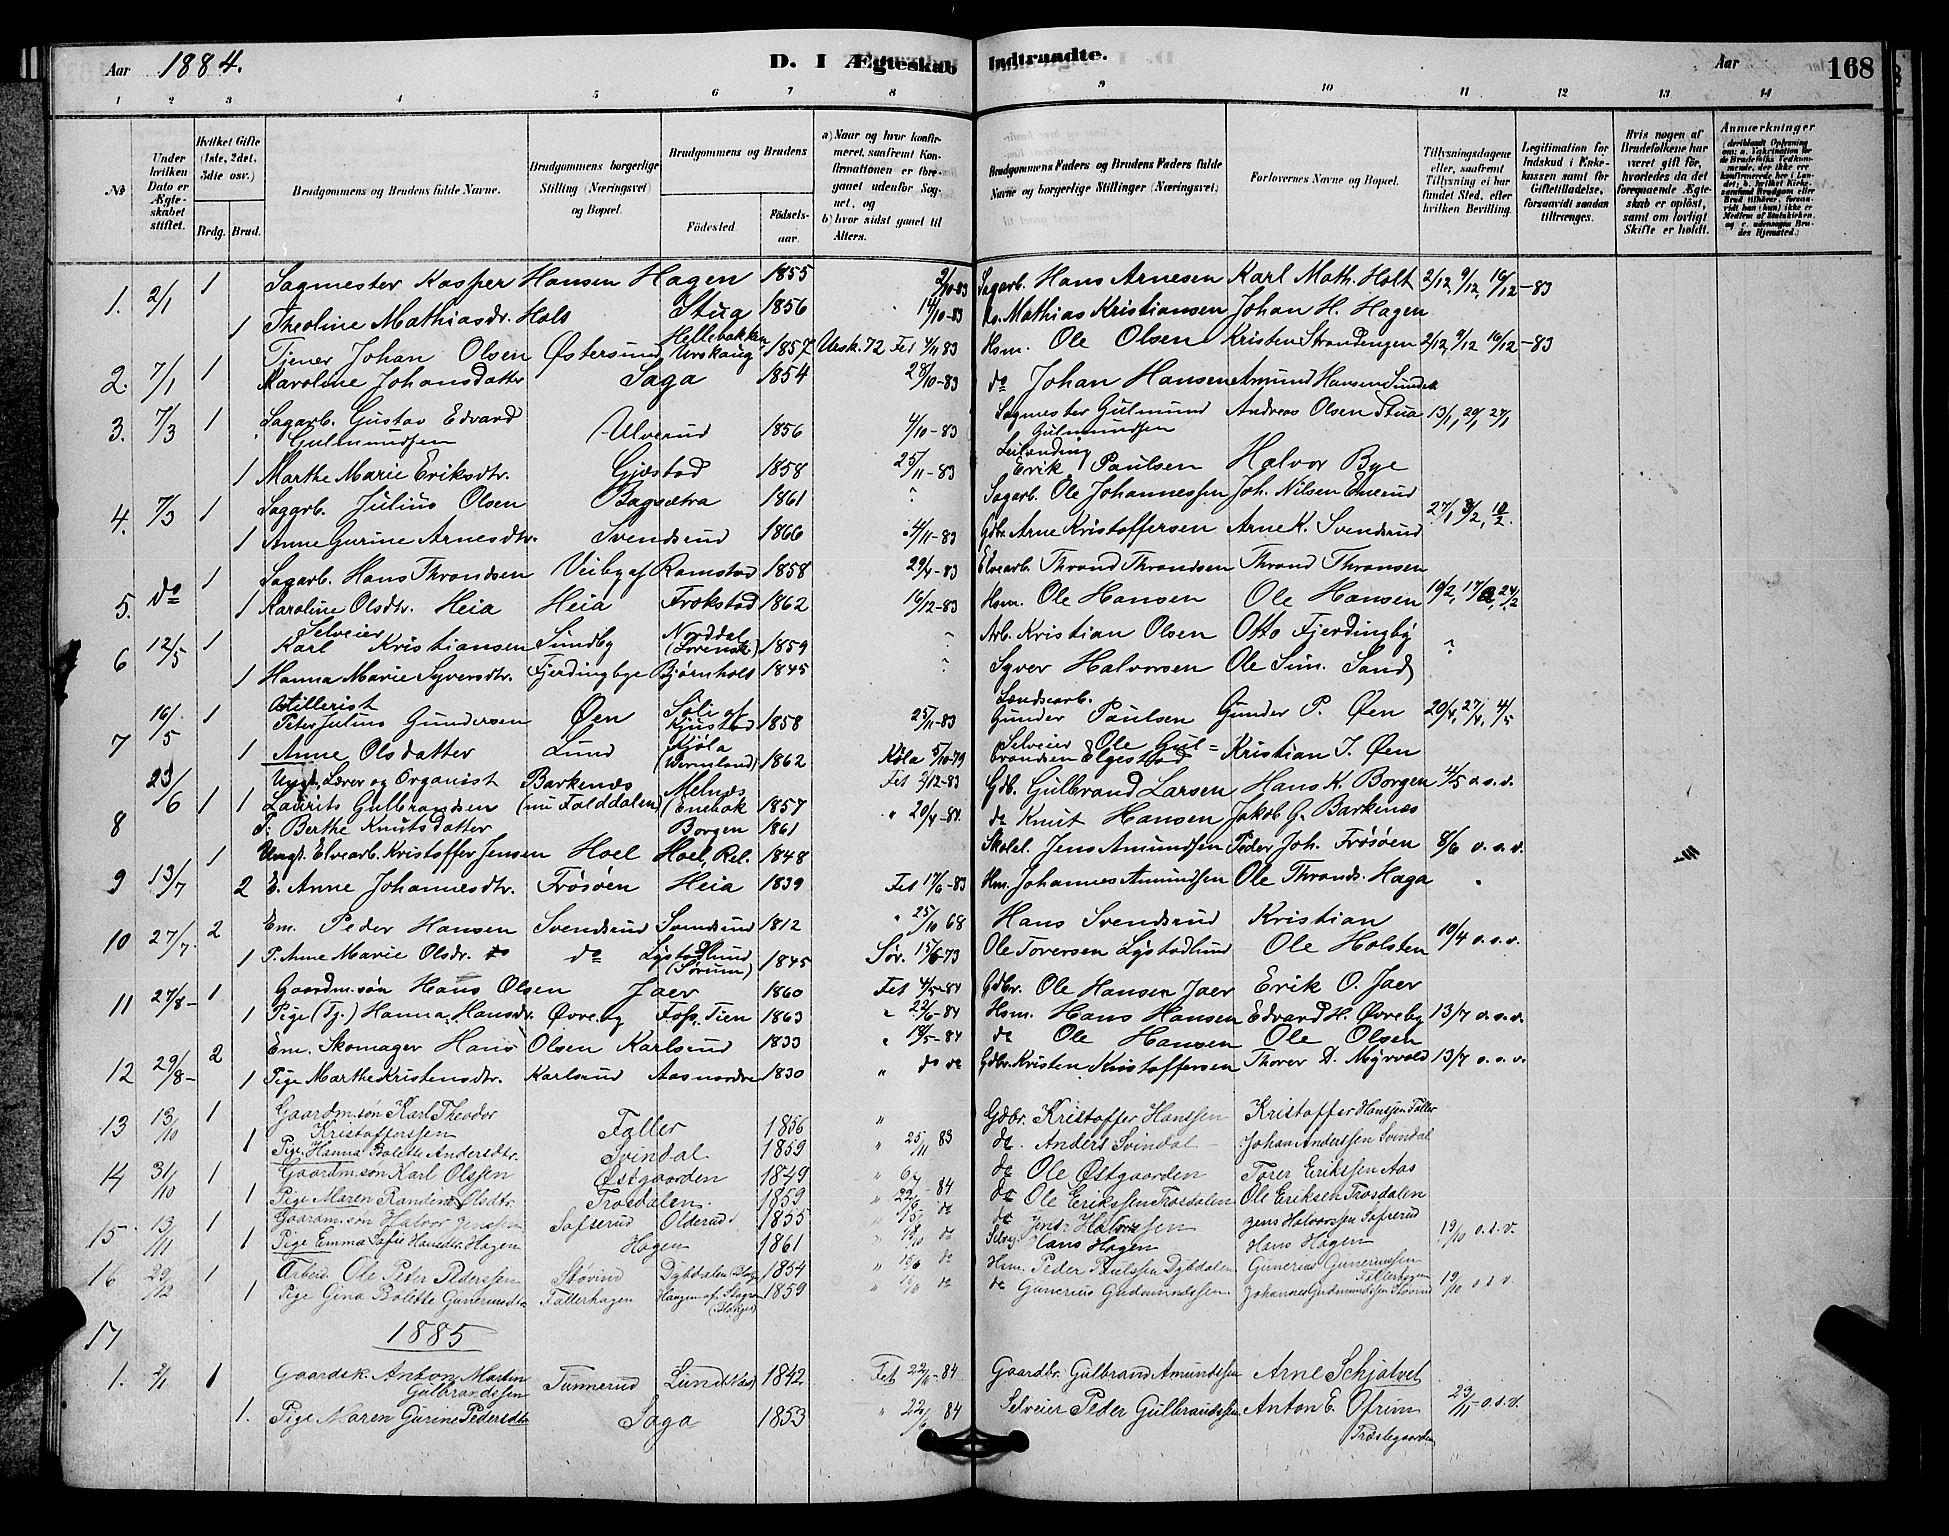 Aar 1884. D. I Ægteskab Indtraadte. Aar 168
1 2 3 4 5 6 7 8 9 10 11 12 13 14
No
Under hvilken Dato er Ægteskabet stiftet.
Hvilket Gifte (1ste, 2det, 3die osv.)
Brdg. Brud.
Brudgommens og Brudens fulde Navne.
Brudgommens borgerlige Stilling (Næringsvei) og Bopæl.
Brudgommens og Brudens
Fødested. Fødselsaar.
a) Naar og hvor konfirmeret, saafremt Konfirmationen er foregaaet udenfor Sognet, og
b) hvor sidst gaaet til Alters.
Brudgommens Faders og Brudens Faders fulde Navne og borgerlige Stillinger (Næringsvei)
Forlovernes Navne og Bopæl.
Tillysningsdagene eller, saafremt Tillysning ei har fundet Sted, efter hvilken Bevilling.
Legitimation for Indskud i Enkekassen samt for Giftetilladelse, forsaavidt saadan tiltrænges.
Hvis nogen af Brudefolkene har været gift før, hvorledes da det foregaaende Ægteskab er opløst, samt om lovligt Skifte er holdt.
Anmærkninger
1. 2/1 1 Sagmester Kasper Hansen Hagen 1855 2/10-83 Sagarb. Hans Arnesen Karl Math. Holt 2/12, 9/12, 16/12-83
1 Theoline Mathiasdr. Hols Stug 1856 14/10-83 do Mathias Kristiansen Johan H. Hagen
2. 7/1 1 Tjener Johan Olsen Østersund Hellebakken Urskaug 1857 Ursk. 72 Fet 4/11 83 Hsm. Ole Olsen Kristen Strandengen 2/12, 9/12 16/12-83
Karoline Johansdatter Saga 1854 28/10-83 do Johan Hansen Amund Hansen Sundet
3. 7/3 1 Sagarb. Gustav Edvard Gulmundsen Ulverud 1856 4/10-83 Sagmester Gulmund Gulmundsen Andreas Olsen Stua 13/1, 20/1 27/1
1 Marthe Marie Eriksdtr. Gjestad 1858 25/11-83 Leilending Erik Paulsen Halvor Bye
4. 7/3 1 Sagarb. Julius Olsen Bagsætra 1861 " Sagarb. Ole Johannessen Joh. Nilsen Enerud 27/1, 3/2, 10/2.
1 Anne Gurine Arnesdtr. Svendsrud 1866 4/11-83 Gdbr. Arne Kristoffersen Arne K. Svendsrud
5. do 1 Sagarb. Hans Throndsen Veiby af Ramstad 1858 29/4-83 Elvearb. Thrond Throndsen Thrond Thronsen
1 Karoline Olsdtr. Heia Heia Frokstad 1862 16/12-83 Hsm. Ole Hansen Ole Hansen 10/2, 17/2, 24/2
6 12/5 1 Selveier Karl Kristiansen Sundby Norddal (Svensk) 1859 " Arb. Kristian Olsen Otto Fjerdingby "
1 Hanna Marie Syversdtr. Fjerdingbye Bjørnholt 1845 " Syver Halvorsen Ole Sim. Sand
7 16/5 1 Peter Julius Gundersen Øen Soli af Kjustad 1858 25/11-83 Landsarb. Gunder Paulsen Gunder P. Øen 20/4, 27/4, 4/5
1 Anne Olsdatter Lund Kjöla (Vermland) 1862 Köla 5/10-79 Selveier Ole Gulbrandsen Elgestad Kristian J. Øen
8 23/6 1 1 Ungk. Lærer og Organist Laurits Gulbrandsen Barkenæs (nu Folddalen) Melnæs (Enebak 1857 Fet 2/12-83 Gdb. Gulbrand Larsen Hans K. Borgen 4/5 o.s.v.
P. Berthe Knutsdatter Borgen 1861 " 20/4-84 do Knut Hansen Jakob G. Barkenæs
9 13/7 1 Ungk. Elvearb. Kristoffer Jensen Hoel Hoel, Rel. 1848 Skolel. Jens Amundsen Peder Joh. Frøsøen 8/6 o.s.v.
2 E. Anne Johannesdtr. Frøsøen Heia 1839 Fet 17/6-83 Hsm. Johannes Amundsen Ole Thronds. Haga "
10 27/7. 2 Em. Peder Hansen Svendsrud Svendsrud 1812 " 25/10 68 Hans Svendsrud Kristian 10/4 o.s.v.
1 P. Anne Marie Olsdr. do Lystadlund (Sørum) 1845 Sør. 15/6-73 Ole Torersen Lystadlund Ole Holsten
11 27/8- 1 Gaardm.søn Hans Olsen Jaer 1860 Fet 4/5-84 Gdbr. Ole Hansen Jaer Erik O. Jaer
1 Pige (Tj.) Hanna Hansdr. Øvreby Foss, Tien 1863 " 22/6-84 Hsm. Hans Hansen Edvard H. Øvreby 13/7 o.s.v.
12 29/8- 2 Em. Skomager Hans Olsen Karlsrud 1833 " 18/5-84 do Ole Hansen Ole Olsen
1 Pige Marthe Kristensdtr. Karlsrud Aasnordre 1830 " do do Gdbr. Kristen Kristoffersen Thorer D. Myrvold 13/7 o.s.v.
13 13/10 1 Gaardm.søn Karl Theodor Kristofferssen Faller 1856 " Gdbr. Kristoffer Hanssen Kristoffer Hanssen Faller
1 Pige Hanna Bolette Andersdtr. Svindal 1859 " 25/11 83 do. Anders Svindal Johan Anderssen Svindal
14 31/10 1 Gaardm.søn Karl Olssen Østgaarden 1849 " do Ole Østgaarden Torer Erikssen Aas
1 Pige Maren Randine Olsdtr. Trosdalen 1859 " 22/6-84 do Ole Erikssen Trosdalen Ole Eriksen Trosdalen
15. 13/11 1 Gaardm.søn Halvor Jenssen Sofserud Olderud 1855 " do do Jens Halvorssen Jens Halvorssen Sofserud 19/10 o.s.v.
1 Pige Emma Sofie Hansdtr. Hagen Hagen 1861 " do Selvej. Hans Hagen Hans Hagen
16 29/12 1 Arbeid. Ole Peter Pederssen Støvind Dybdalen 1854 " 15/6 do Hsm. Peder Paulssen Dybdalen Gunerius Gunerinssen Fallerhagen 19/10 o.s.v.
1 Pige Gina Bolette Guneriusdtr. Fallerhagen 1859 " 15/6 do do Gunerius Gudmundssen Johannes Gudmundssen Støvind
17 1885
1. 2/1 1 Gaardsk. Anton Martin Gulbrandssen Tunnerud Lundstad 1842 Fet 22/6-84 Gaardbr. Gulbrand Amundssen Arne Schjatvet 23/11 o.s.v.
1. Pige Maren Gurine Pedersdtr. Saga 1853 " 22/6 84 Selveier Peder Gulbrandssen Anton E. Ofrim Træslegaarden